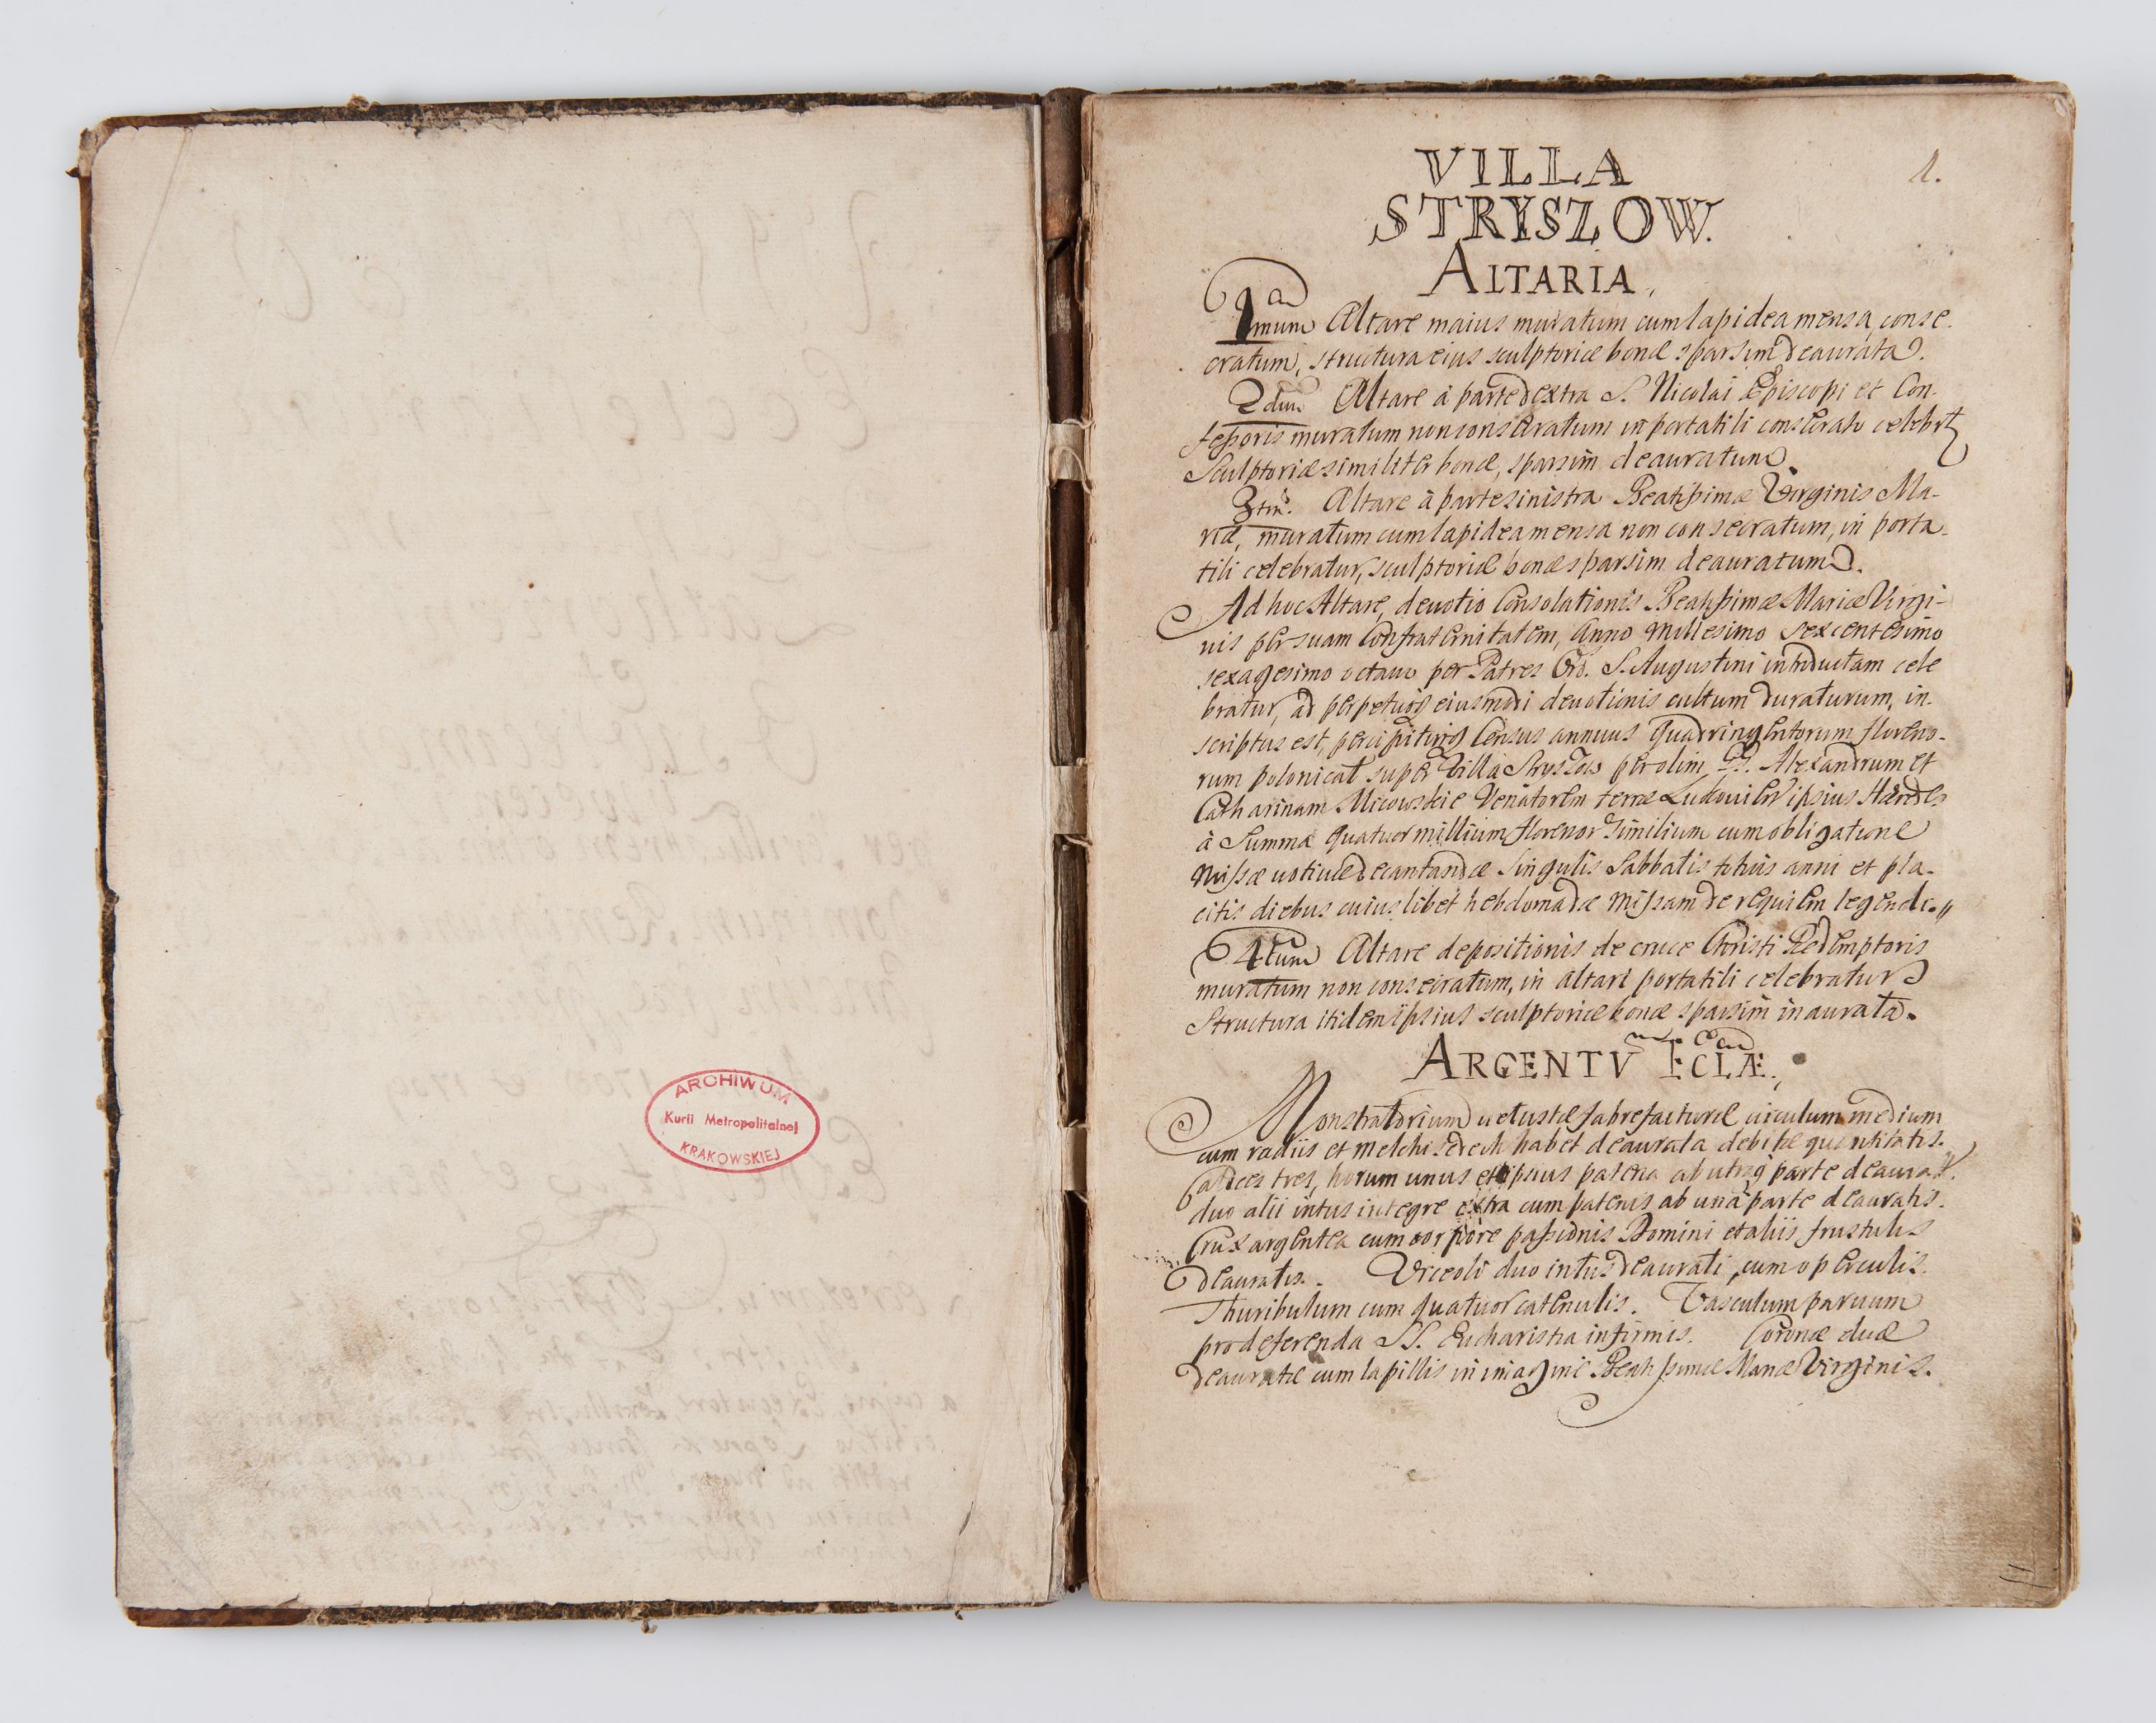 ARCHIWUM
Kurii Metropolitalnej
KRAKOWSKIEJ
1.
VILLA
STRYSZOW.
ALTARIA.
1mum Altare maius muratum cum lapidea mensa, conse-
cratum, structura eius sculptoriæ bonæ sparsim deaurata.
2dum Altare à parte dextra S. Nicolai Episcopi et Con-
fessoris muratum non consecratum in portatili consecrato celebrt
Sculptoriæ similiter bonæ, sparsim deauratum.
3tiu. Altare à parte sinistra Beatissimæ Virginis Ma-
riæ, muratum cum lapidea mensa non consecratum, in porta-
tili celebratur, sculptoriæ bonæ sparsim deauratum.
Ad hoc Altare, deuotio Consolationis Beatissimæ Mariæ Virgi-
nis per suam Confraternitatem, Anno Millesimo sexcentesimo
sexagesimo octauo per Patres Ord. S. Augustini introductam cele
bratur, ad perpetuūq eiusmodi deuotionis cultum duraturum, in-
scriptus est, percipiturq Census annuus quadringentorum floreno-
rum polonical super Villa Stryszow per olim Alexandrum et
Catharinam Micowskie Venatorem terræ ipsius Hæredes
à Summa quatuor millium florenor similium cum obligatione
Missæ uotiuæ decantandæ Singulis Sabbatis totius anni et pla-
citis diebus cuiuslibet hebdomadæ Missam de requiem legendi.
4tum Altare depositionis de cruce Christi Redemptoris
muratum non consecratum, in altari portatili celebratur
Structura itidem ipsius sculptoriæ bonæ sparsim inaurata.
ARGENTV ECLÆ.
Monstratorium uetustæ fabrefacturæ circulum medium
cum radiis et melchisedech habet deaurata debitæ quantitatis.
Calices tres, horum unus et ipsius patena ab utraq parte deaurat.
duo alii intus integre extra cum patenis ab unâ parte deauratis.
Crux argentea cum corpore passionis Domini et aliis frustulis
deauratis. Urceoli duo intus deaurati, cum operculis.
Thuribulum cum quatuor catenulis. Vasculum paruum
pro deferenda SS. Eucharistia infirmis. Coronæ duæ
deauratæ cum lapillis in imagine Beatissimæ Mariæ Virginis.